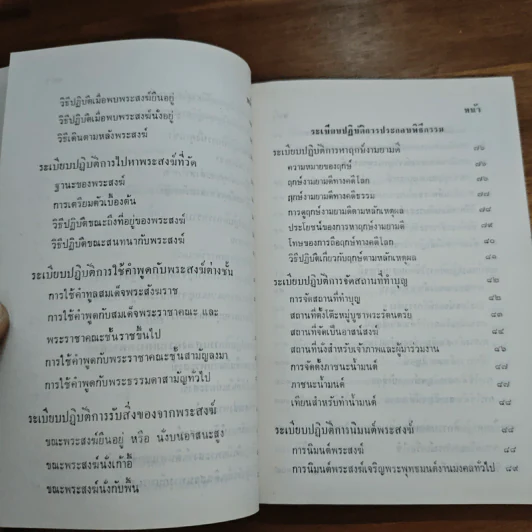 วิธีปฏิบัติเมื่อพบพระสงฆ์ยืนอยู่
วิธีปฏิบัติเมื่อพบพระสงฆ์นั่งอยู่
วิธีเดินตามหลังพระสงฆ์
ระเบียบปฏิบัติการไปหาพระสงฆ์ที่วัด
ฐานะของพระสงฆ์
การเตรียมตัวเบื้องต้น
วิธีปฏิบัติขณะถึงที่อยู่ของพระสงฆ์
วิธีปฏิบัติขณะสนทนากับพระสงฆ์
ระเบียบปฏิบัติการใช้คำพูดกับพระสงฆ์ต่างชั้น
การใช้คำทูลสมเด็จพระสังฆราช
การใช้คำพูดกับสมเด็จพระราชาคณะ และ
พระราชาคณะชั้นราชขึ้นไป
การใช้คำพูดกับพระราชาคณะชั้นสามัญลงมา
การใช้คำพูดกับพระธรรมดาสามัญทั่วไป
ระเบียบปฏิบัติการรับสิ่งของจากพระสงฆ์
ขณะพระสงฆ์ยืนอยู่ หรือ นั่งบนอาสนะสูง
ขณะพระสงฆ์นั่งเก้าอี้
ขณะพระสงฆ์นั่งกับพื้น
หน้า
ระเบียบปฏิบัติการประกอบพิธีกรรม
ระเบียบปฏิบัติการหาฤกษ์งามยามดี ๗๖
ความหมายของฤกษ์ ๗๖
ฤกษ์งามยามดีทางคดีโลก ๗๖
ฤกษ์งามยามดีทางคดีธรรม ๗๗
การดูฤกษ์งามยามดีตามหลักเหตุผล ๗๘
ประโยชน์ของการหาฤกษ์งามยามดี ๗๙
โทษของการถือฤกษ์ทางคดีโลก ๘๐
วิธีปฏิบัติเกี่ยวกับฤกษ์ตามหลักเหตุผล ๘๑
ระเบียบปฏิบัติการจัดสถานที่ทำบุญ ๘๒
การจัดสถานที่ทำบุญ ๘๒
สถานที่ตั้งโต๊ะหมู่บูชาพระรัตนตรัย ๘๒
สถานที่จัดเป็นอาสน์สงฆ์ ๘๕
สถานที่นั่งสำหรับเจ้าภาพและผู้มาร่วมงาน ๘๖
การจัดตั้งภาชนะน้ำมนต์ ๘๗
ภาชนะน้ำมนต์ ๘๗
เทียนสำหรับทำน้ำมนต์ ๘๗
ระเบียบปฏิบัติการนิมนต์พระสงฆ์ ๘๘
การนิมนต์พระสงฆ์ ๘๘
การนิมนต์พระสงฆ์เจริญพระพุทธมนต์งานมงคลทั่วไป ๘๙